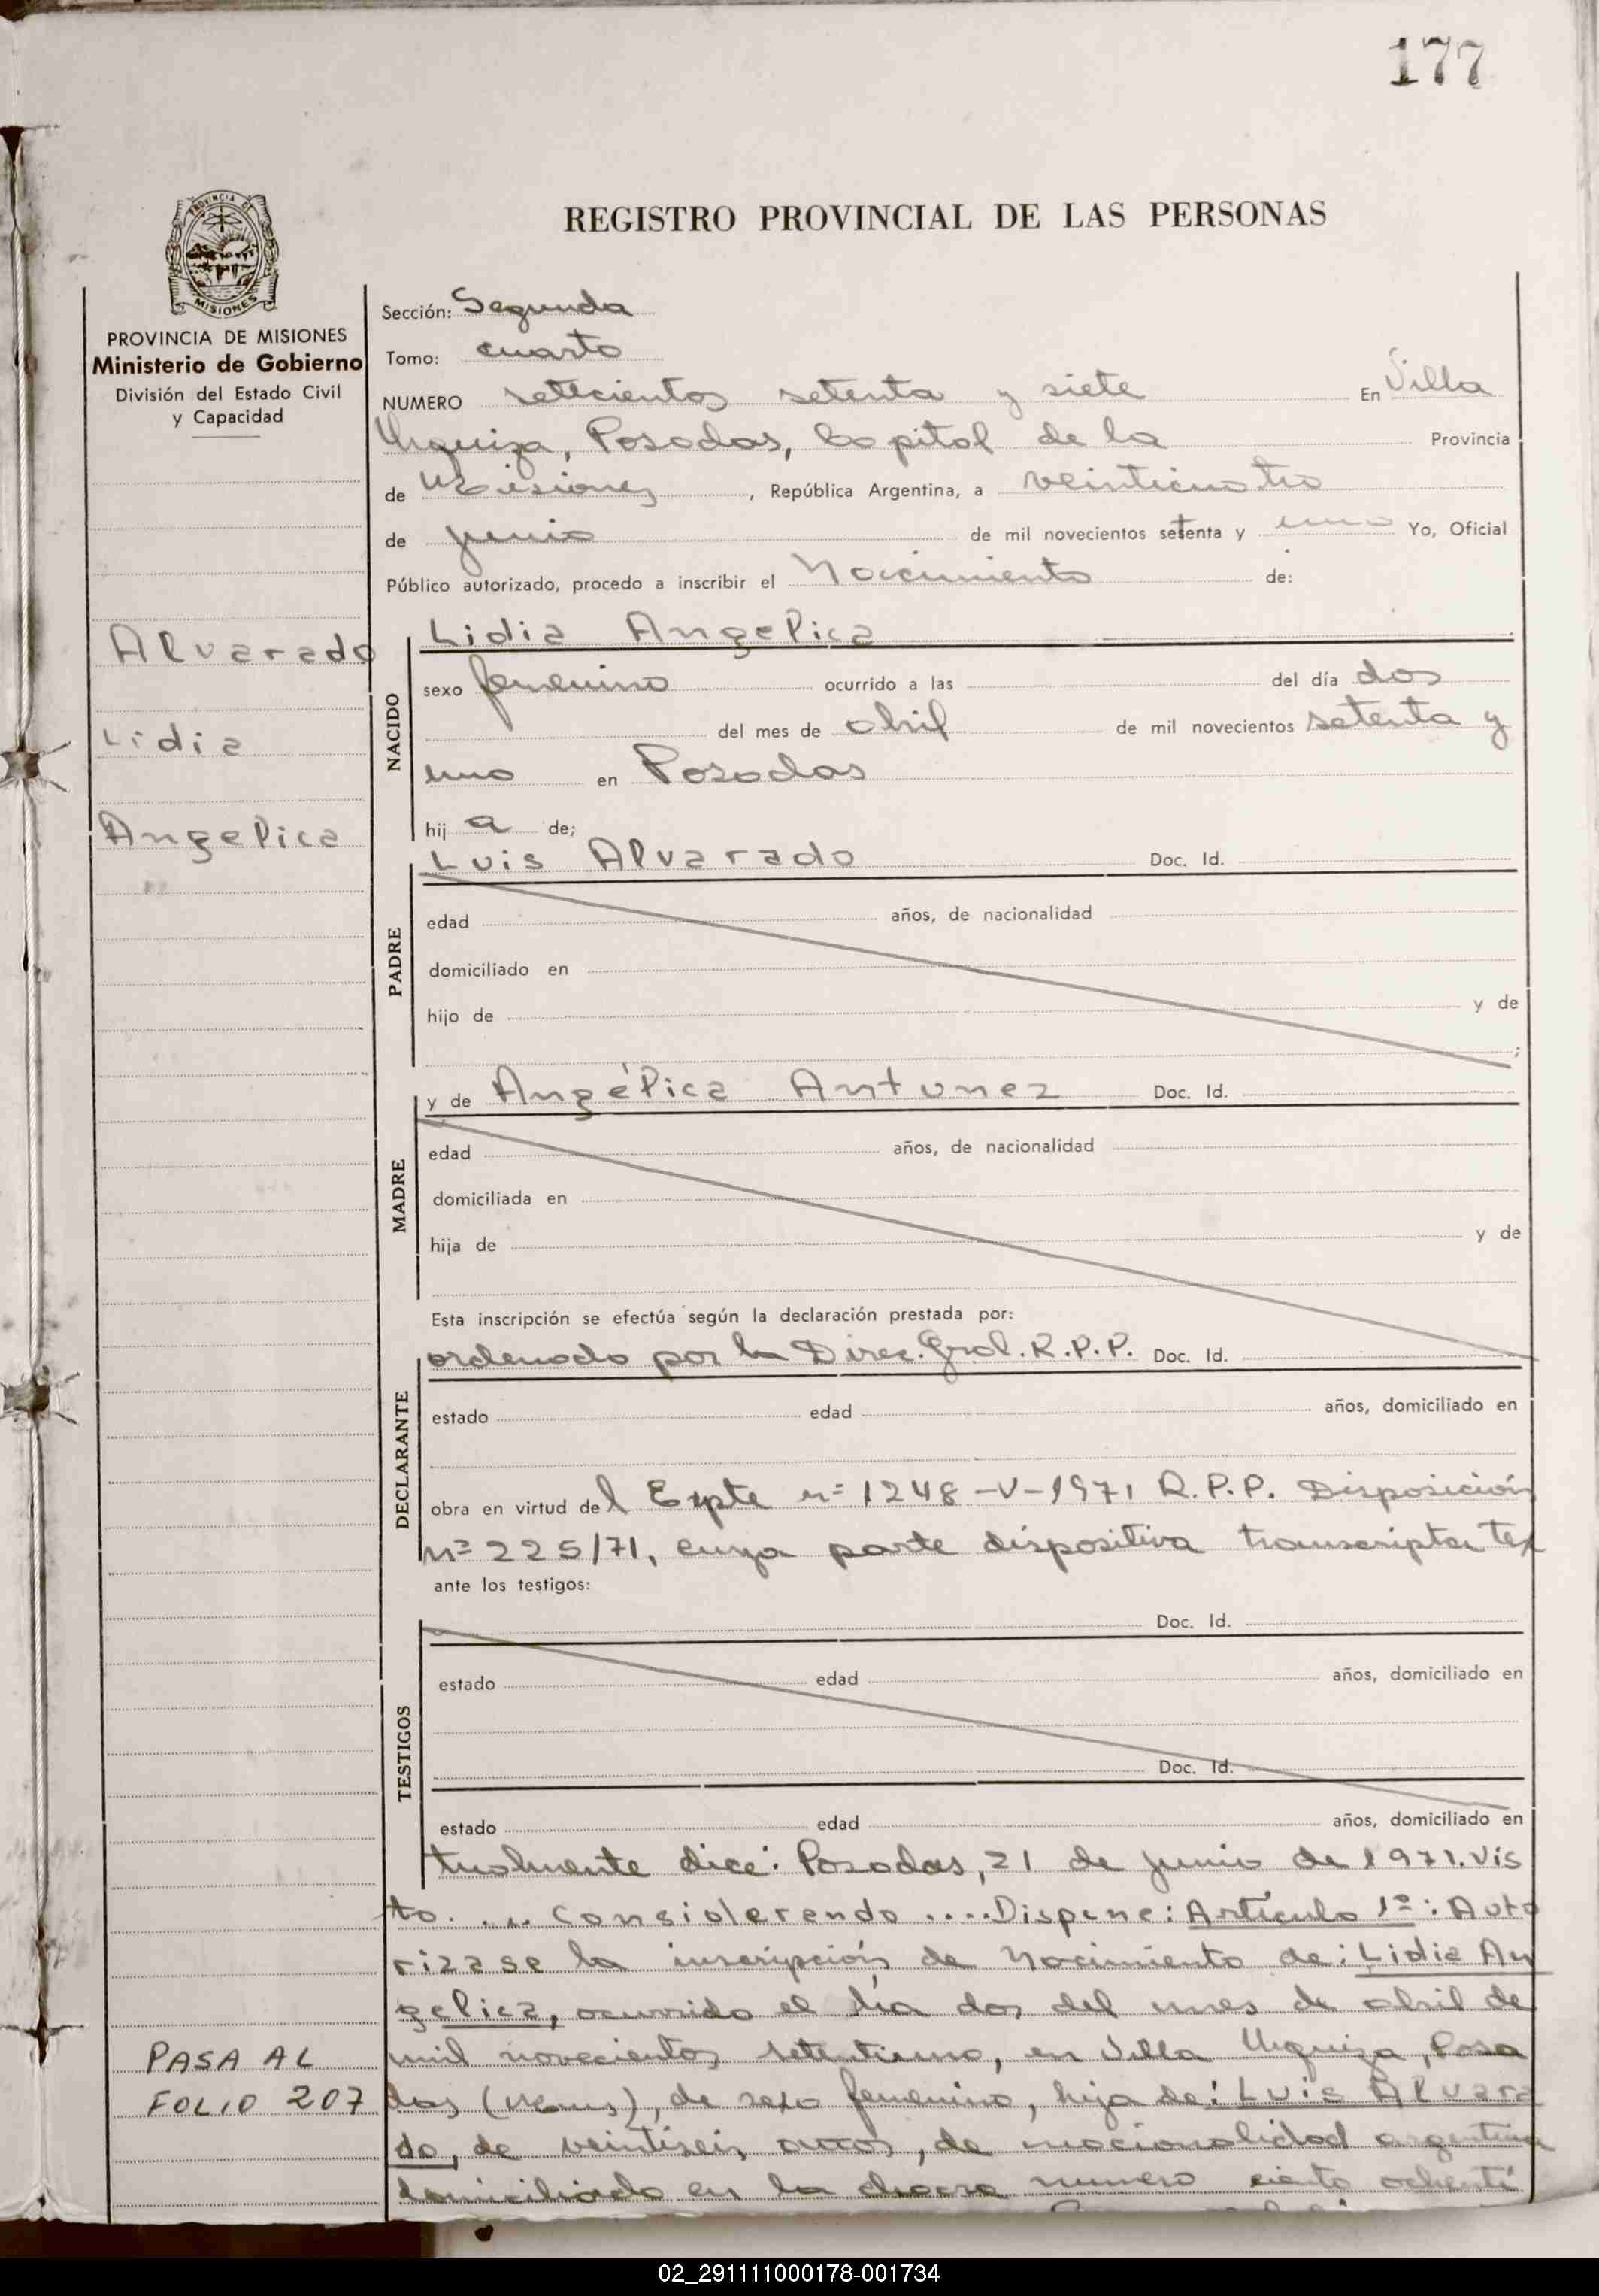 177
REGISTRO PROVINCIAL DE LAS PERSONAS
PROVINCIA DE MISIONES
Ministerio de Gobierno
División del Estado Civil
y Capacidad
Alvarado
Lidia
Angelica
Sección: Segunda
Tomo: cuarto
NUMERO setecientos setenta y siete En Villa
Urquiza, Posadas, Capital de la Provincia
de Misiones, República Argentina, a veinticuatro
de junio de mil novecientos setenta y uno Yo, Oficial
Público autorizado, procedo a inscribir el Nacimiento de:
NACIDO
Lidia Angelica
sexo femenino ocurrido a las del día dos
del mes de abril de mil novecientos setenta y
uno en Posadas
hij a de;
PADRE
Luis Alvarado Doc. Id.
edad años, de nacionalidad
domiciliado en
hijo de y de
;
MADRE
y de Angélica Antunez Doc. Id.
edad años, de nacionalidad
domiciliada en
hija de y de
Esta inscripción se efectúa según la declaración prestada por:
DECLARANTE
ordenado por la Direc. Gral. R.P.P. Doc. Id.
estado edad años, domiciliado en
obra en virtud del Expte nº 1248-V-1971 R.P.P. Disposición
nº 225/71, cuya parte dispositiva transcripta tex
ante los testigos:
TESTIGOS
Doc. Id.
estado edad años, domiciliado en
Doc. Id.
estado edad años, domiciliado en
tualmente dice: Posadas, 21 de junio de 1971. Vis
to.... Considerendo .... Dispone: Artículo 1º: Auto
rizase la inscripción de Nacimiento de: Lidia An
gelica, ocurrido el día dos del mes de abril de
mil novecientos setentiuno, en Villa Urquiza, Posa
das (Mnes), de sexo femenino, hija de: Luis Alvara
do, de veintiseis años, de nacionalidad argentina
domiciliado en la chacra numero ciento ochenti
PASA AL
FOLIO 207
02_291111000178-001734